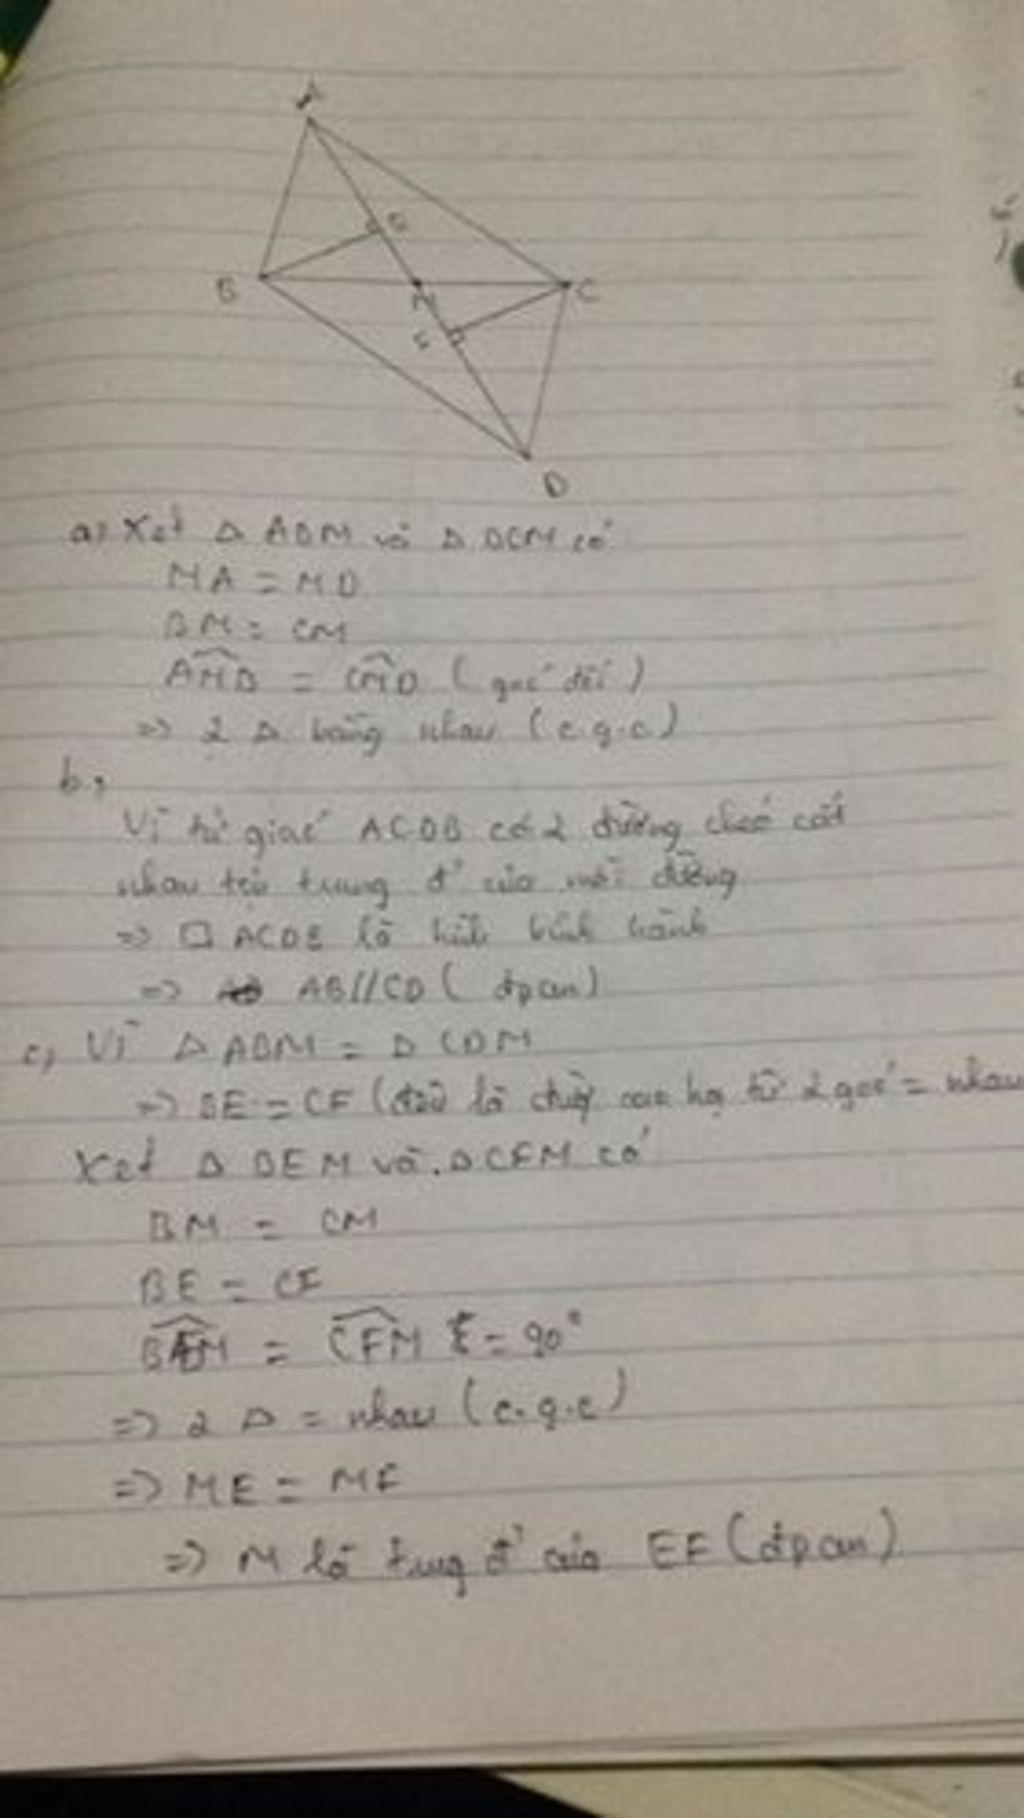 A
E
B
C
M
F
D
a, Xét Δ ABM và Δ DCM có
MA = MD
BM = CM
AMB = CMD (góc đối)
=> 2 Δ bằng nhau (c.g.c)
b,
Vì tứ giác ACDB có 2 đường chéo cắt
nhau tại trung đ' của mỗi đường
=> □ ACDB là hình bình hành
=> AB//CD ( đpcm)
c, Vì Δ ABM = Δ CDM
=> BE = CF (đều là đường cao hạ từ 2 góc = nhau
Xét Δ BEM và Δ CFM có
BM = CM
BE = CF
BEM = CFM = 90°
=> 2 Δ = nhau (c.g.c)
=> ME = MF
=> M là trung đ' của EF (đpcm)